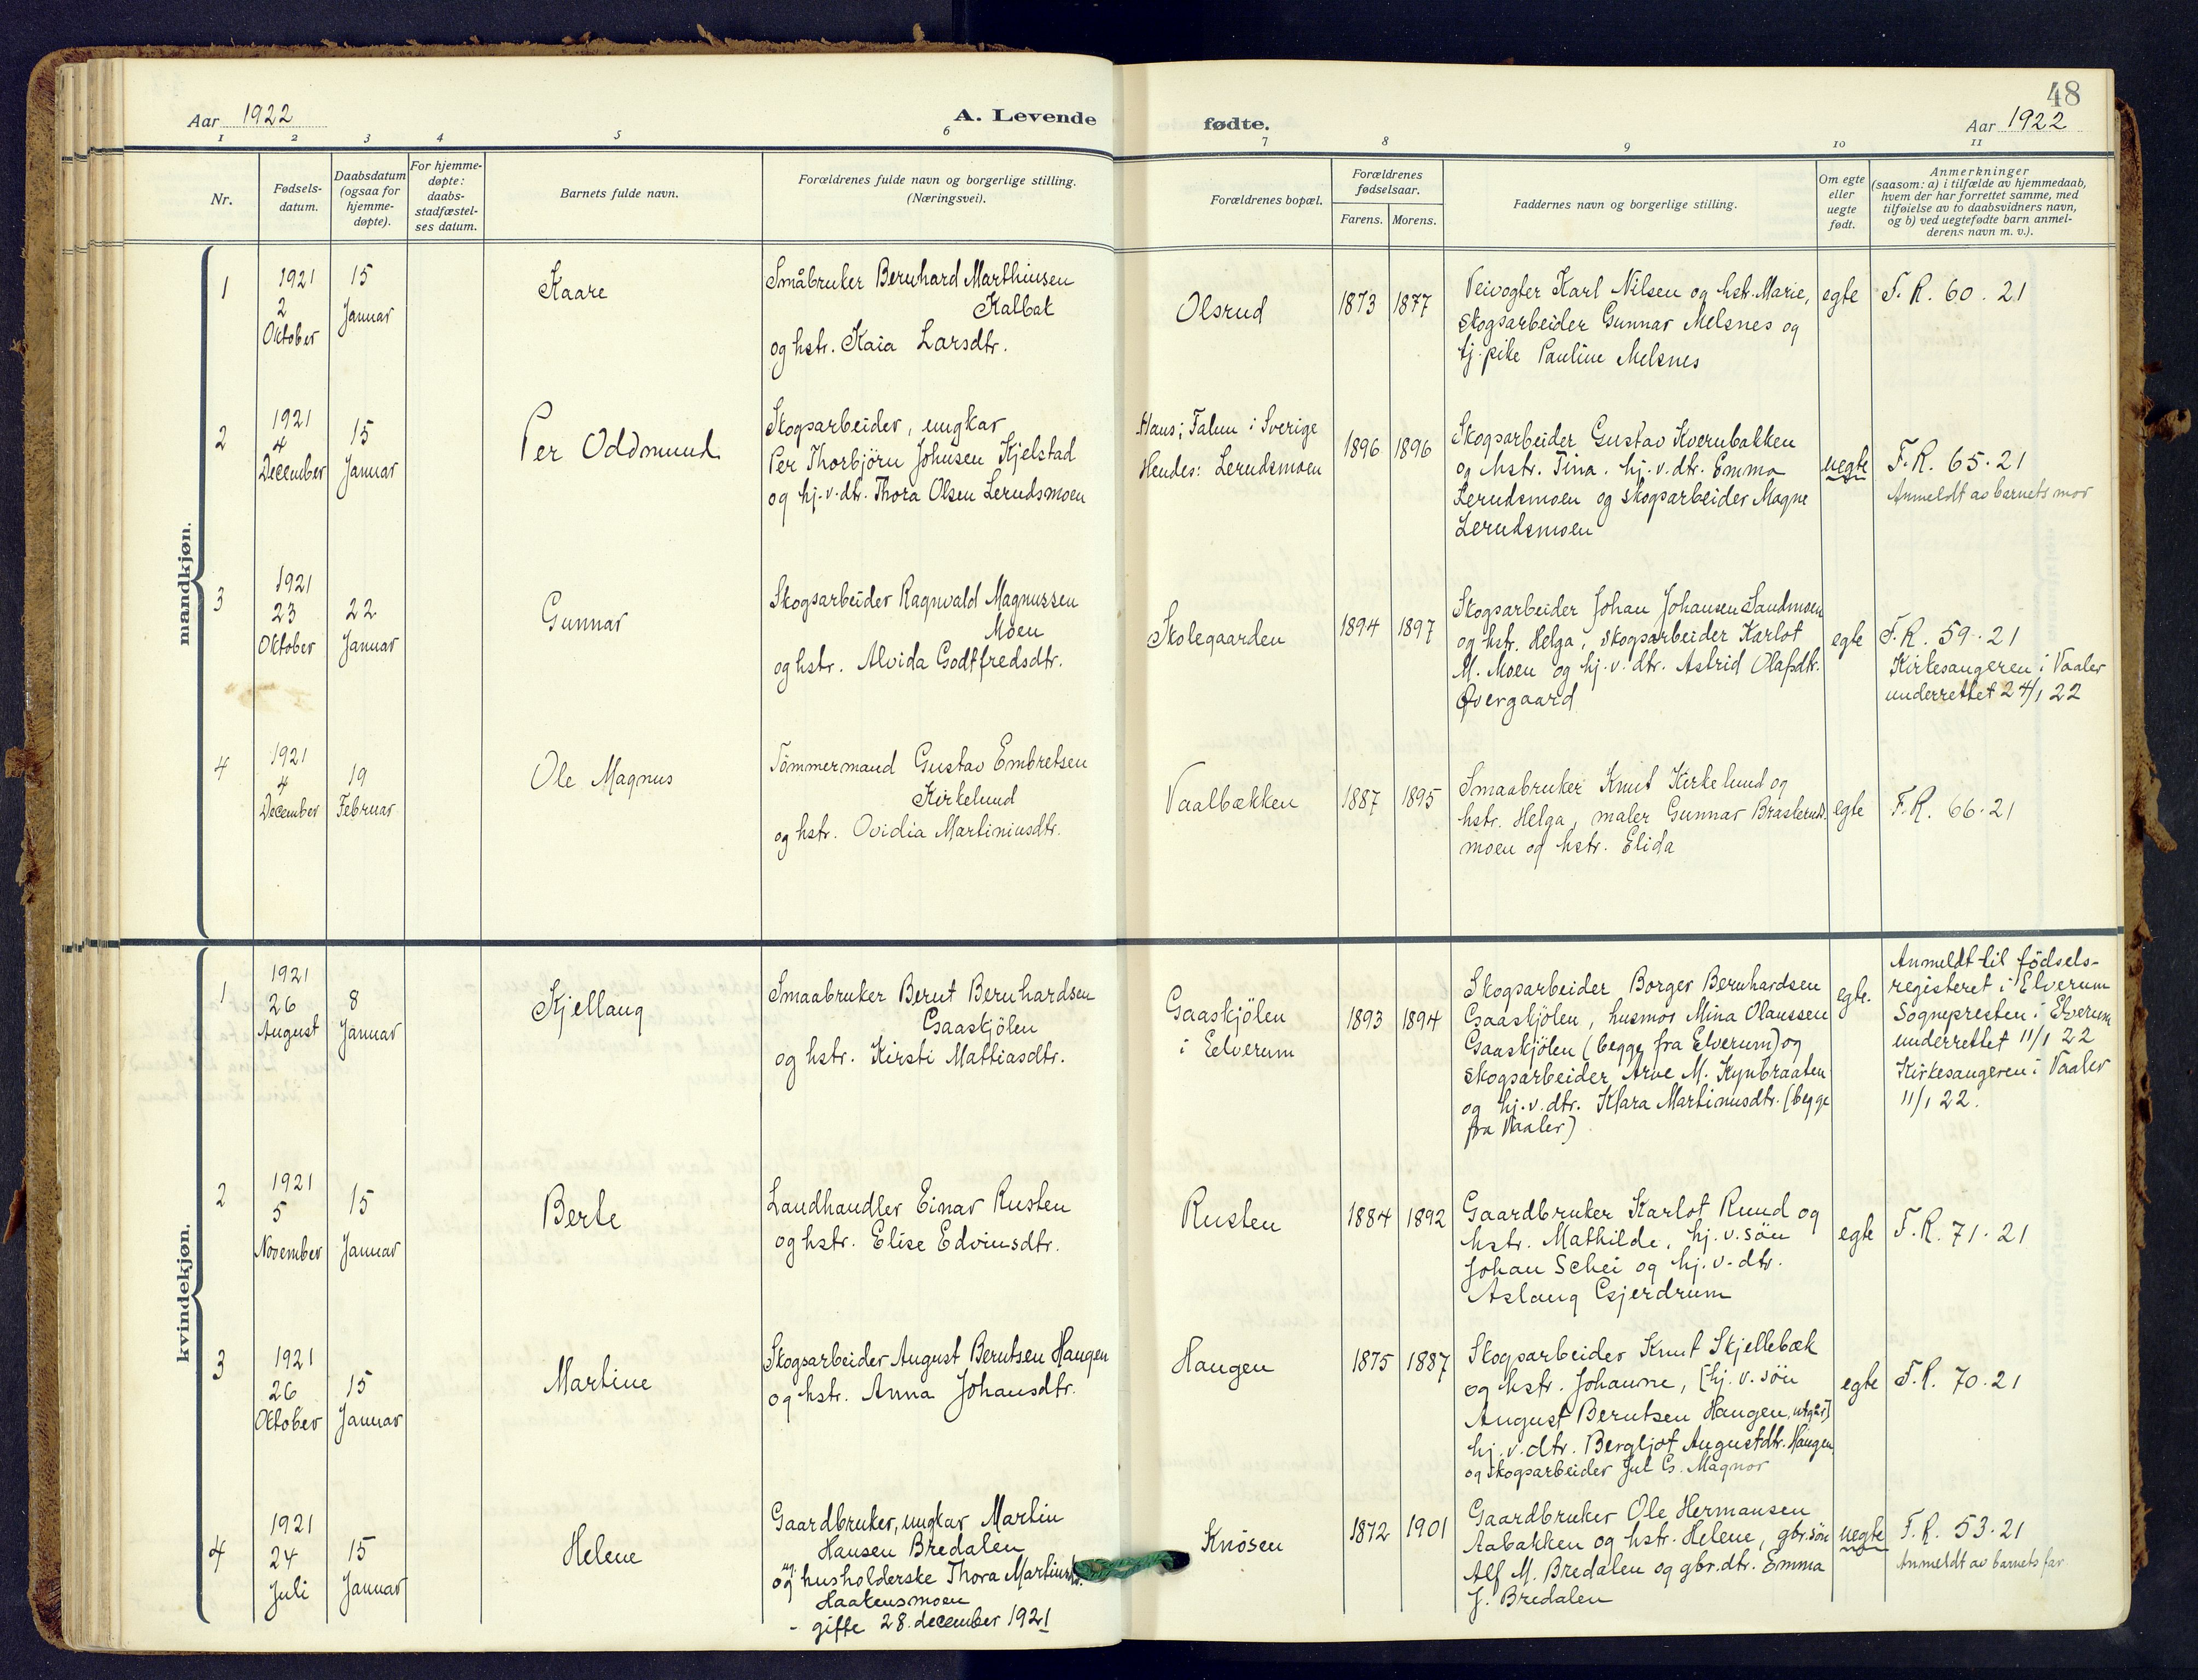 48
Aar 1922
A. Levende
fødte.
Aar 1922
1 2 3 4 5 6 7 8 9 10 11
Nr.
Fødsels-
datum.
Daabsdatum
(ogsaa for
hjemme-
døpte).
For hjemme-
døpte:
daabs-
stadfæstel-
ses datum.
Barnets fulde navn.
Forældrenes fulde navn og borgerlige stilling.
(Næringsvei).
Forældrenes bopæl.
Forældrenes
fødselsaar.
Farens. Morens.
Faddernes navn og borgerlige stilling.
Om egte
eller
uegte
født.
Anmerkninger
(saasom: a) i tilfælde av hjemmedaab,
hvem der har forrettet samme, med
tilføielse av to daabsvidners navn,
og b) ved uegtefødte barn anmel-
derens navn m. v.).
mandkjøn.
1
1921
2
Oktober
15
Januar
Kaare
Småbruker Bernhard Marthinsen
Kalbak
og hstr. Kaia Larsdtr.
Olsrud
1873
1877
Veivogter Karl Nilsen og hstr. Marie,
skogsarbeider Gunnar Melsnes og
tj. pike Pauline Melsnes
egte
F. R. 60. 21
2
1921
4
December
15
Januar
Per Oddmund
Skogsarbeider, ungkar
Per Thorbjörn Johnsen Kjelstad
og hj.v.dt. Thora Olsen Lerudsmoen
Hans; Falun i Sverige
Hendes: Lerudsmoen
1896
1896
Skogsarbeider Gustav Kvernbakken
og hstr. Tina. hj.v.dtr. Emma
Lerudsmoen og skogsarbeider Magne
Lerudsmoen
uegte
F. R. 65. 21
Anmeldt av barnets mor
3
1921
23
Oktober
22
Januar
Gunnar
Skogsarbeider Ragnvald Magnussen
Moen
og hstr. Alvida Godtfredsdtr.
Skolegaarden
1894
1897
Skogsarbeider Johan Johansen Sandmoen
og hstr. Helga, skogsarbeider Karlot
M. Moen og hj.v.dtr. Astrid Olafsdtr.
Øvergaard
egte
F. R. 59. 21
Kirkesangeren i Vaaler
underrettet 24/1 22
4
1921
4
December
19
Februar
Ole Magnus
Tömmermand Gustav Embretsen
Kirkelund
og hstr. Ovidia Martiniusdtr.
Vaalbækken
1887
1895
Smaabruker Knut Kirkelund og
hstr. Helga, maler Gunnar Brasteruds
moen og hstr. Elida
egte
F. R. 66. 21
kvindekjøn.
1
1921
26
August
8
Januar
Kjellaug
Smaabruker Bernt Bernhardsen
Gaaskjölen
og hstr. Kirsti Mattiasdtr.
Gaaskjölen
i Eelverum
1893
1894
Skogsarbeider Borger Bernhardsen
Gaaskjölen, husmor Mina Olaussen
Gaaskjölen (begge fra Elverum) og
skogsarbeider Arve M. Kynbraaten
og hj.v.dtr. Klara Martinusdtr. (begge
fra Vaaler)
egte.
Anmeldt til födsels-
registeret i Elverum
Sognepresten i Elverum
underrettet 11/1 22
Kirkesangeren i Vaaler
11/1 22.
2
1921
5
November
15
Januar
Berte
Landhandler Einar Rusten
og hstr. Elise Edvinsdtr.
Rusten
1884
1892
Gaardbruker Karlot Rund og
hstr. Mathilde, hj.v.sön
Johan Schei og hj.v.dtr.
Aslaug Gjerdrum
egte
F. R. 71. 21
3
1921
26
Oktober
15
Januar
Martine
Skogsarbeider August Berntsen Haugen
og hstr. Anna Johansdtr.
Haugen
1875
1887
Skogsarbeider Knut Skjellebæk
og hstr. Johanne, [hj.v.sön
August Berntsen Haugen, utgår]
hj.v.dtr. Bergljot Augustdtr. Haugen
og skogsarbeider Jul G. Magnor
egte
F. R. 70. 21
4
1921
24
Juli
15
Januar
Helene
Gaardbruker, ungkar Martin
Hansen Bredalen
og husholderske Thora Martinsdtr.
Haakensmoen
- gifte 28. december 1921
Knösen
1872
1901
Gaardbruker Ole Hermansen
Aabakken og hstr. Helene, gbr.sön
Alf M. Bredalen og gbr.dtr. Emma
J. Bredalen
uegte
F. R. 53. 21
Anmeldt av barnets far